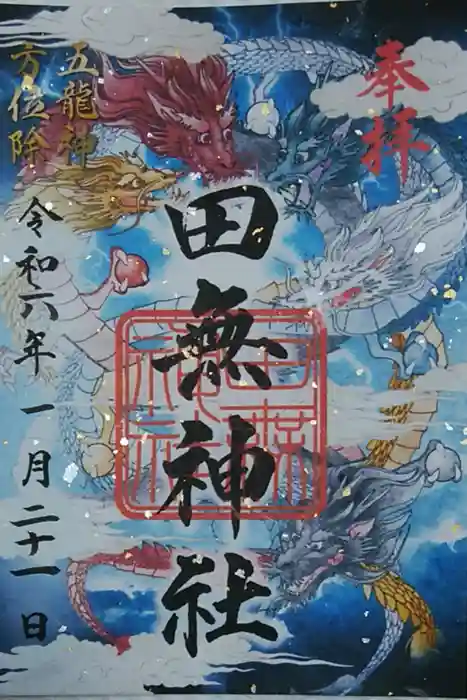 奉拝
田無神社
五龍神
方位除
令和六年一月二十一日